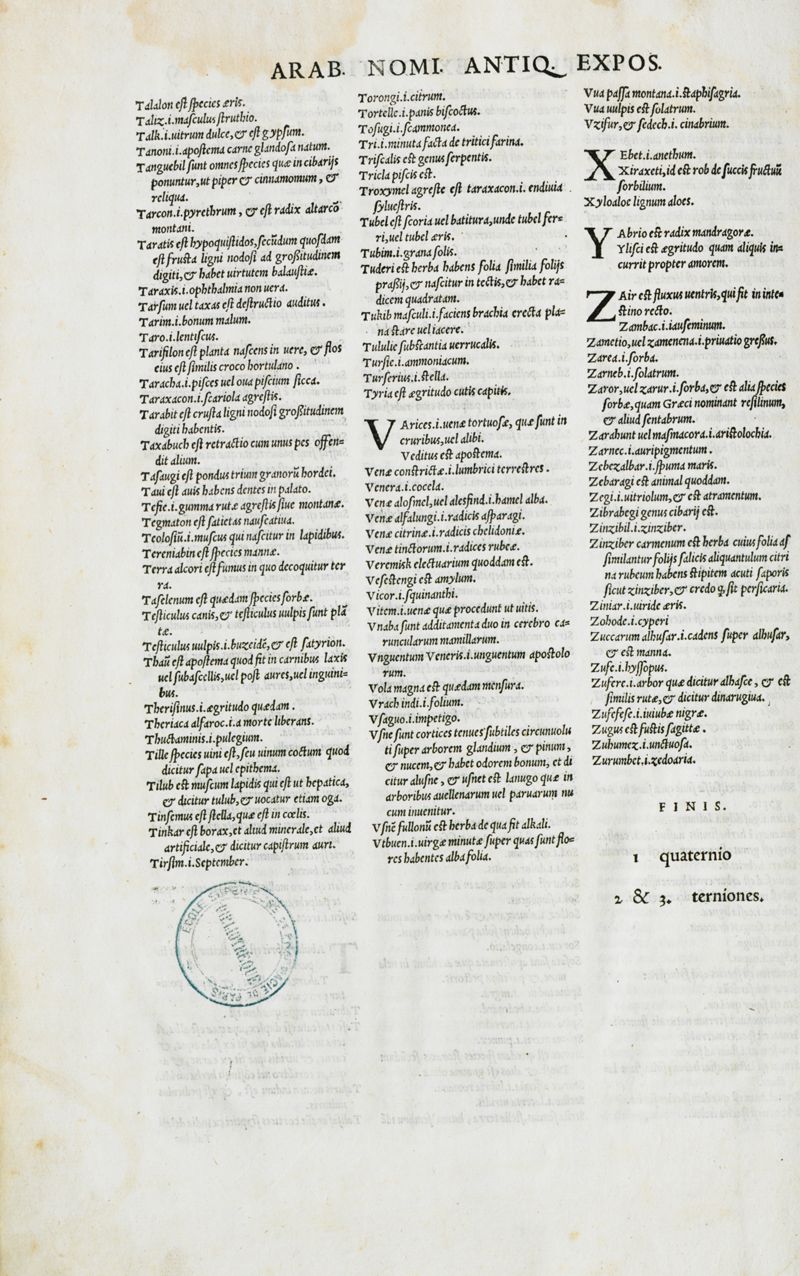 ARAB. NOMI. ANTIQ. EXPOS.
Talalon eſt ſpecies æris.
Taliz.i.maſculus ſtruthio.
Talk.i.uitrum dulce, & eſt gypſum.
Tanoni.i.apoſtema carne glandoſa natum.
Tanguebil ſunt omnes ſpecies quæ in cibarijs
ponuntur, ut piper & cinnamomum, &
reliqua.
Tarcon.i.pyrethrum, & eſt radix altarcō
montani.
Taratis eſt hypoquiſtidos, ſecūdum quoſdam
eſt fruſta ligni nodoſi ad großitudinem
digiti, & habet uirtutem balauſtiæ.
Taraxis.i.ophthalmia non uera.
Tarſum uel taxas eſt deſtructio auditus.
Tarim.i.bonum malum.
Taro.i.lentiſcus.
Tarifilon eſt planta naſcens in uere, & flos
eius eſt ſimilis croco hortulano.
Taracha.i.piſces uel oua piſcium ſicca.
Taraxacon.i.ſcariola agreſtis.
Tarabit eſt cruſta ligni nodoſi großitudinem
digiti habentis.
Taxabuch eſt retractio cum unus pes offen=
dit alium.
Tafaugi eſt pondus trium granorū hordei.
Taui eſt auis habens dentes in palato.
Tefie.i.gumma rutæ agreſtis ſiue montanæ.
Tegmaton eſt ſatietas nauſeatiua.
Teoloſiū.i.muſcus qui naſcitur in lapidibus.
Tereniabin eſt ſpecies mannæ.
Terra alcori eſt fumus in quo decoquitur ter
ra.
Taſelenum eſt quædam ſpecies ſorbæ.
Teſticulus canis, & teſticulus uulpis ſunt plā
tæ.
Teſticulus uulpis.i.buzeidē, & eſt ſatyrion.
Thaū eſt apoſtema quod fit in carnibus laxis
uel ſubaſcellis, uel poſt aures, uel inguini=
bus.
Therifinus.i.ægritudo quædam.
Theriaca alfaroc.i.a morte liberans.
Thuctaminis.i.pulegium.
Tille ſpecies uini eſt, ſeu uinum coctum quod
dicitur ſapa uel epithema.
Tilub eſt muſcum lapidis qui eſt ut hepatica,
& dicitur tulub, & uocatur etiam oga.
Tinſemus eſt ſtella, quæ eſt in cœlis.
Tinkar eſt borax, et aliud minerale, et aliud
artificiale, & dicitur capiſtrum auri.
Tirſim.i.September.
Torongi.i.citrum.
Tortelle.i.panis biſcoctus.
Tofugi.i.ſcammonea.
Tri.i.minuta facta de tritici farina.
Triſcalis eſt genus ſerpentis.
Tricla piſcis eſt.
Troxymel agreſte eſt taraxacon.i. endiuia
ſylueſtris.
Tubel eſt ſcoria uel batitura, unde tubel fer=
ri, uel tubel æris.
Tubim.i.grana ſolis.
Tuderi eſt herba habens folia ſimilia folijs
praßij, & naſcitur in tectis, & habet ra=
dicem quadratam.
Tukib maſculi.i.faciens brachia erecta pla=
na ſtare uel iacere.
Tululie ſubſtantia uerrucalis.
Turſie.i.ammoniacum.
Turſerius.i.ſtella.
Tyria eſt ægritudo cutis capitis.
VArices.i.uenæ tortuoſæ, quæ ſunt in
cruribus, uel alibi.
Veditus eſt apoſtema.
Venæ conſtrictæ.i.lumbrici terreſtres.
Venera.i.cocela.
Venæ aloſmel, uel alesfind.i.hamel alba.
Venæ alfalungi.i.radicis aſparagi.
Venæ citrinæ.i.radicis chelidoniæ.
Venæ tinctorum.i.radices rubeæ.
Veremisk electuarium quoddam eſt.
Veſeſtengi eſt amylum.
Vicor.i.ſquinanthi.
Vitem.i.uenæ quæ procedunt ut uitis.
Vnaba ſunt additamenta duo in cerebro ca=
runcularum mamillarum.
Vnguentum Veneris.i.unguentum apoſtolo
rum.
Vola magna eſt quædam menſura.
Vrach indi.i.folium.
Vſaguo.i.impetigo.
Vſne ſunt cortices tenues ſubtiles circunuolu
ti ſuper arborem glandium, & pinum,
& nucem, & habet odorem bonum, et di
citur aluſne, & uſnet eſt lanugo quæ in
arboribus auellenarum uel paruarum nu
cum inuenitur.
Vſnē fullonū eſt herba de qua fit alkali.
Vtbuen.i.uirgæ minutæ ſuper quas ſunt flo=
res habentes alba folia.
Vua paſſa montana.i.ſtaphiſagria.
Vua uulpis eſt ſolatrum.
Vzifur, & ſedech.i. cinabrium.
XEbet.i.anethum.
Xiraxeti, id eſt rob de ſuccis fructuū
ſorbilium.
Xyloaloe lignum aloes.
YAbrio eſt radix mandragoræ.
Yliſci eſt ægritudo quam aliquis in=
currit propter amorem.
ZAir eſt fluxus uentris, qui fit in inte=
ſtino recto.
Zambac.i.iauſeminum.
Zametio, uel zamenena.i.priuatio greßus.
Zarea.i.ſorba.
Zarneb.i.ſolatrum.
Zaror, uel zarur.i.ſorba, & eſt alia ſpecies
ſorbæ, quam Græci nominant reſilinum,
& aliud ſentabrum.
Zarahunt uel maſmacora.i.ariſtolochia.
Zarnec.i.auripigmentum.
Zebezalbar.i.ſpuma maris.
Zebaragi eſt animal quoddam.
Zegi.i.uitriolum, & eſt atramentum.
Zibrabegi genus cibarij eſt.
Zinzibil.i.zinziber.
Zinziber carmenum eſt herba cuius folia aſ
ſimilantur folijs ſalicis aliquantulum citri
na rubeum habens ſtipitem acuti ſaporis
ſicut zinziber, & credo q̃ ſit perſicaria.
Ziniar.i.uiride æris.
Zohode.i.cyperi
Zuccarum alhuſar.i.cadens ſuper alhuſar,
& eſt manna.
Zufe.i.hyſſopus.
Zufere.i.arbor quæ dicitur alhaſce, & eſt
ſimilis rutæ, & dicitur dinarugiua.
Zufefefe.i.iuiubæ nigræ.
Zugus eſt fuſtis ſagittæ.
Zuhumez.i.unctuoſa.
Zurumbet.i.zedoaria.
FINIS.
1 quaternio
2 & 3. terniones.
ECOLE
PARIS